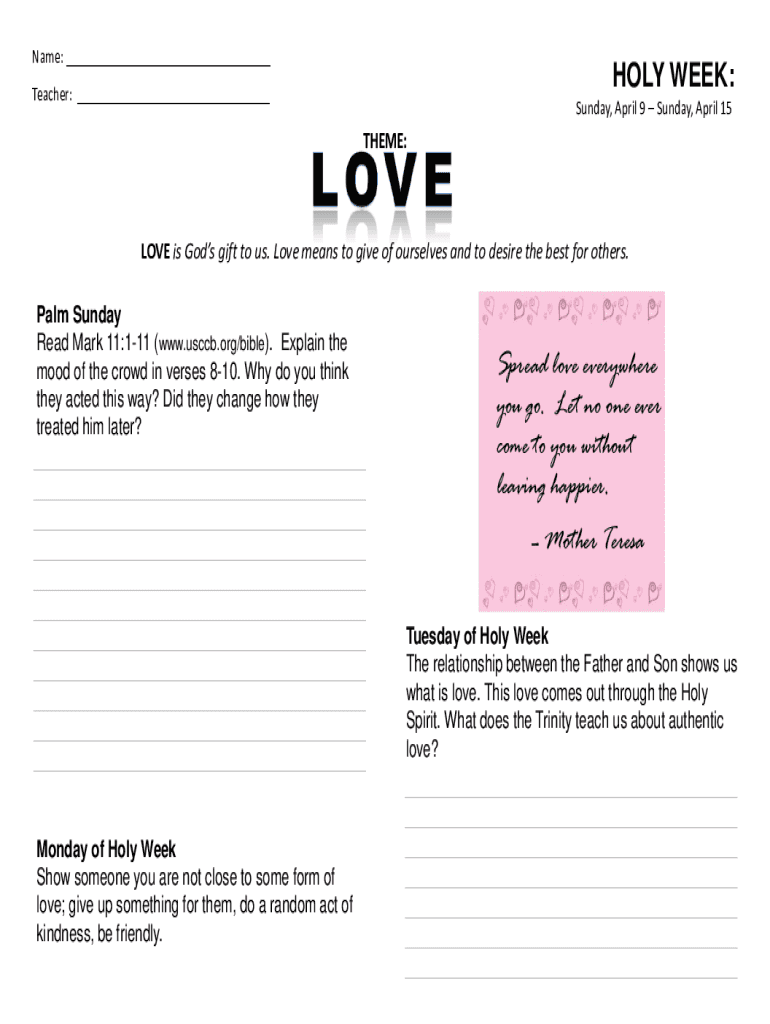 Name:
Teacher:
HOLY WEEK:
Sunday, April 9 – Sunday, April 15
THEME:
LOVE
LOVE is God's gift to us. Love means to give of ourselves and to desire the best for others.
Palm Sunday
Read Mark 11:1-11 (www.usccb.org/bible). Explain the
mood of the crowd in verses 8-10. Why do you think
they acted this way? Did they change how they
treated him later?
Monday of Holy Week
Show someone you are not close to some form of
love; give up something for them, do a random act of
kindness, be friendly.
Spread love everywhere
you go. Let no one ever
come to you without
leaving happier.
– Mother Teresa
Tuesday of Holy Week
The relationship between the Father and Son shows us
what is love. This love comes out through the Holy
Spirit. What does the Trinity teach us about authentic
love?